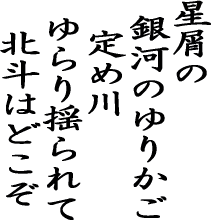 星屑の
銀河のゆりかご
定め川
ゆらり揺られて
北斗はどこぞ